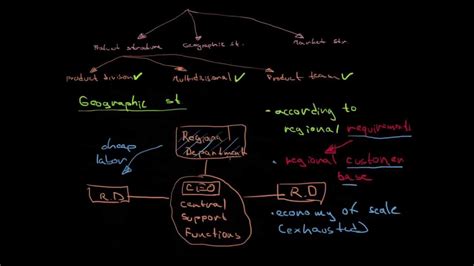 Product structure
Geographic st.
Market str.
Product division ✓
Multidivisional ✓
Product team ✓
Geographic st
• according to
regional requirements
cheap
labor
Regional
Department
• regional customer
base
R.D
CEO
central
support
functions
R.D
• economy of scale
(exhausted)